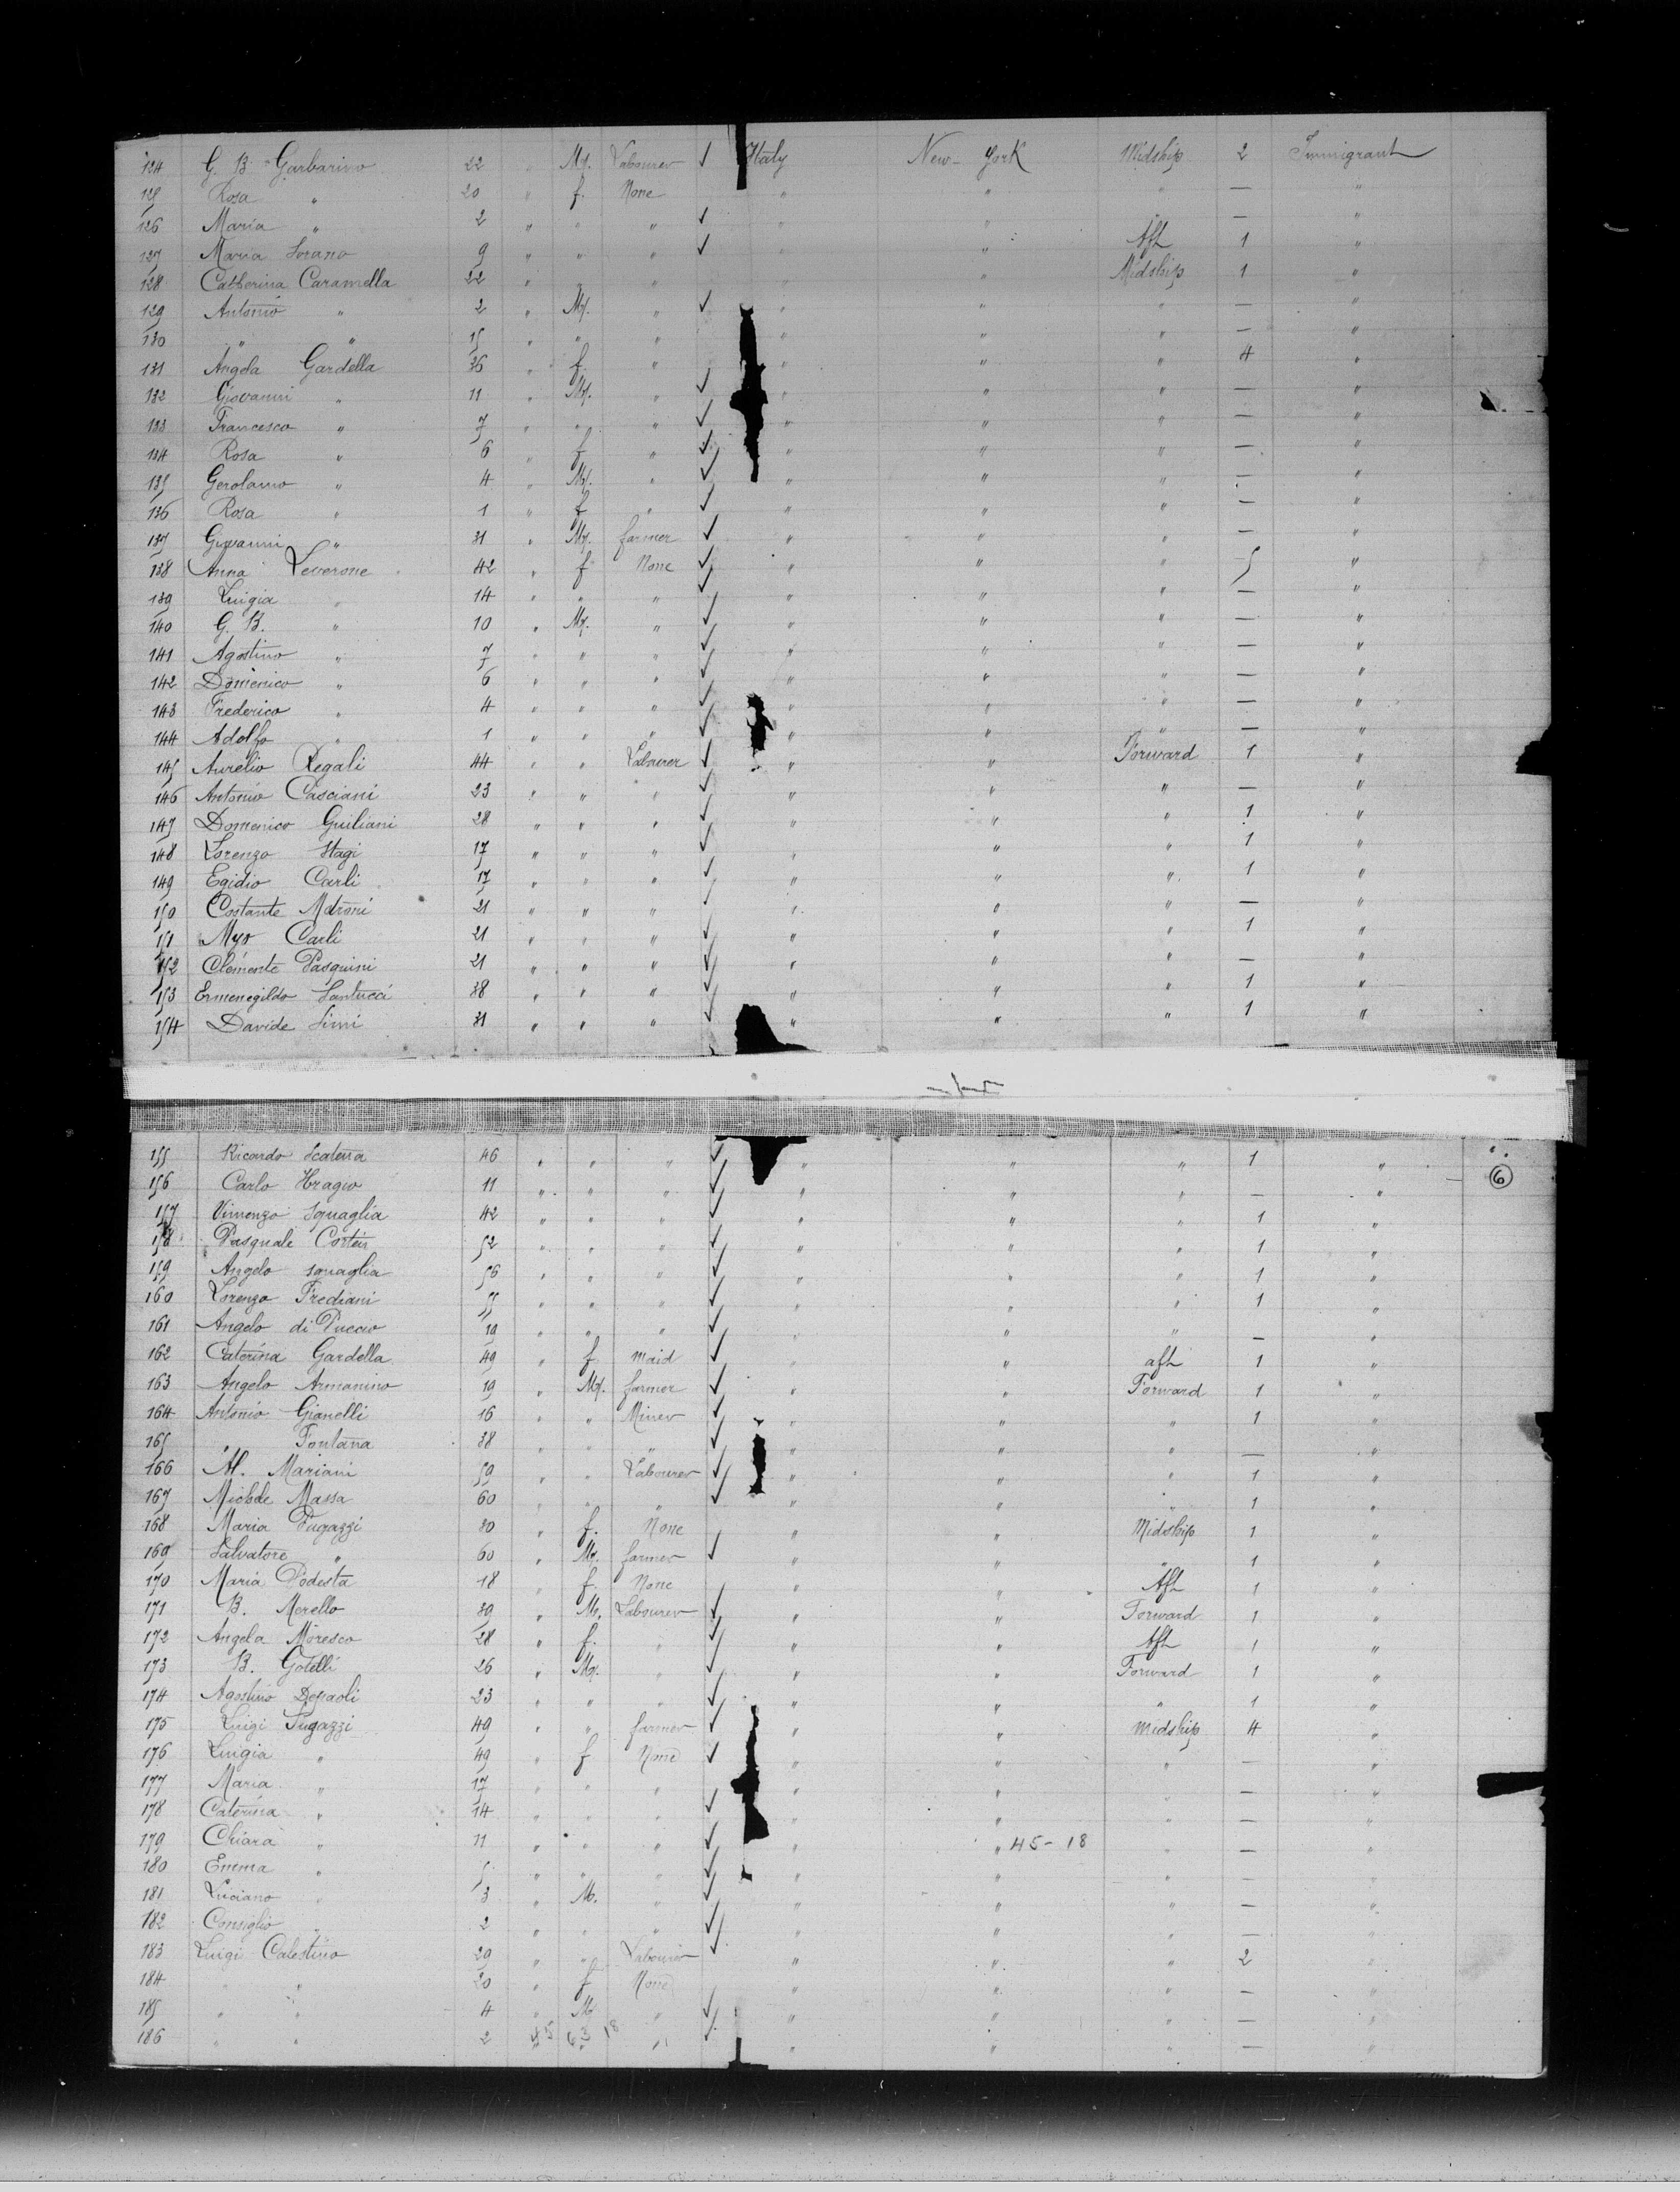 124 G. B. Garbarino 22 " M. Labourer ✓ Italy New-York Midship 2 Immigrant
125 Rosa " 20 " f. None " " " — "
126 Maria " 2 " " " ✓ " " — "
127 Maria 9 " " " ✓ " " Aft 1 "
128 Catterina Caramella 22 " " " " " Midship 1 "
129 Antonio " 2 " M. " ✓ " " " — "
130 " " 15 " " " " " " — "
131 Angela Gardella 36 " f. " " " " 4 "
132 Giovanni " 11 " M. " ✓ " " " — "
133 Francesco " 7 " " " ✓ " " " — "
134 Rosa " 6 " f " ✓ " " " — "
135 Gerolamo " 4 " M. " ✓ " " " — "
136 Rosa " 1 " f " ✓ " " " — "
137 Giovanni " 31 " M. farmer ✓ " " " — "
138 Anna Leverone 42 " f None ✓ " " " 5 "
139 Luigia " 14 " " " ✓ " " " — "
140 G. B. " 10 " M. " ✓ " " " — "
141 Agostino " 7 " " " ✓ " " " — "
142 Domenico " 6 " " " ✓ " " " — "
143 Frederico " 4 " " " ✓ " " " — "
144 Adolfo " 1 " " " ✓ " " " — "
145 Aurelio Regali 44 " " Labourer ✓ " " Forward 1 "
146 Antonio Casciani 23 " " " ✓ " " " — "
147 Domenico Guiliani 28 " " " ✓ " " " 1 "
148 Lorenzo Stagi 17 " " " ✓ " " " 1 "
149 Egidio Carli 17 " " " ✓ " " " 1 "
150 Costante 21 " " " ✓ " " " — "
151 Carli 21 " " " ✓ " " " 1 "
152 Clemente Pasquini 21 " " " ✓ " " " — "
153 Ermenegildo Santucci 38 " " " ✓ " " " 1 "
154 Davide Simi 31 " " " ✓ " " " 1 "
155 Ricardo Scatena 46 " " " ✓ " " " 1 "
156 Carlo 11 " " " ✓ " " " — " 6
157 Vincenzo Squaglia 42 " " " ✓ " " " 1 "
158 Pasquale 52 " " " ✓ " " " 1 "
159 Angelo squaglia 56 " " " ✓ " " " 1 "
160 Lorenzo Frediani 55 " " " ✓ " " " 1 "
161 Angelo di Puccio 19 " " " ✓ " " " — "
162 Caterina Gardella 49 " f. maid ✓ " " aft 1 "
163 Angelo Armanino 19 " M. farmer ✓ " " Forward 1 "
164 Antonio Gianelli 16 " " Miner ✓ " " " 1 "
165 " Fontana 38 " " " ✓ " " " — "
166 Mariani 59 " " Labourer ✓ " " " 1 "
167 Michele Massa 60 " " " ✓ " " " 1 "
168 Maria Fugazzi 30 " f. None " " Midship 1 "
169 Salvatore " 60 " M. farmer ✓ " " " 1 "
170 Maria Podesta 18 " f. None " " Aft 1 "
171 B. Merello 39 " M. Labourer ✓ " " Forward 1 "
172 Angela Moresco 28 " f. " ✓ " " Aft 1 "
173 B. Gotelli 26 " M. " ✓ " " Forward 1 "
174 Agostino Depaoli 23 " " " ✓ " " " 1 "
175 Luigi Fugazzi 49 " " farmer ✓ " " midship 4 "
176 Luigia " 49 " f None ✓ " " " — "
177 Maria " 17 " " " " " " — "
178 Caterina " 14 " " " ✓ " " " — "
179 Chiara " 11 " " " ✓ " " 45-18 " — "
180 Emma " 5 " " " ✓ " " " — "
181 Luciano " 3 " M. " ✓ " " " — "
182 Consiglio " 2 " " " ✓ " " " — "
183 Luigi Calestino 29 " " Labourer ✓ " " " 2 "
184 " " 20 " f None " " " — "
185 " " 4 " M " ✓ " " " — "
186 " " 2 45 63 18 " ✓ " " " — "